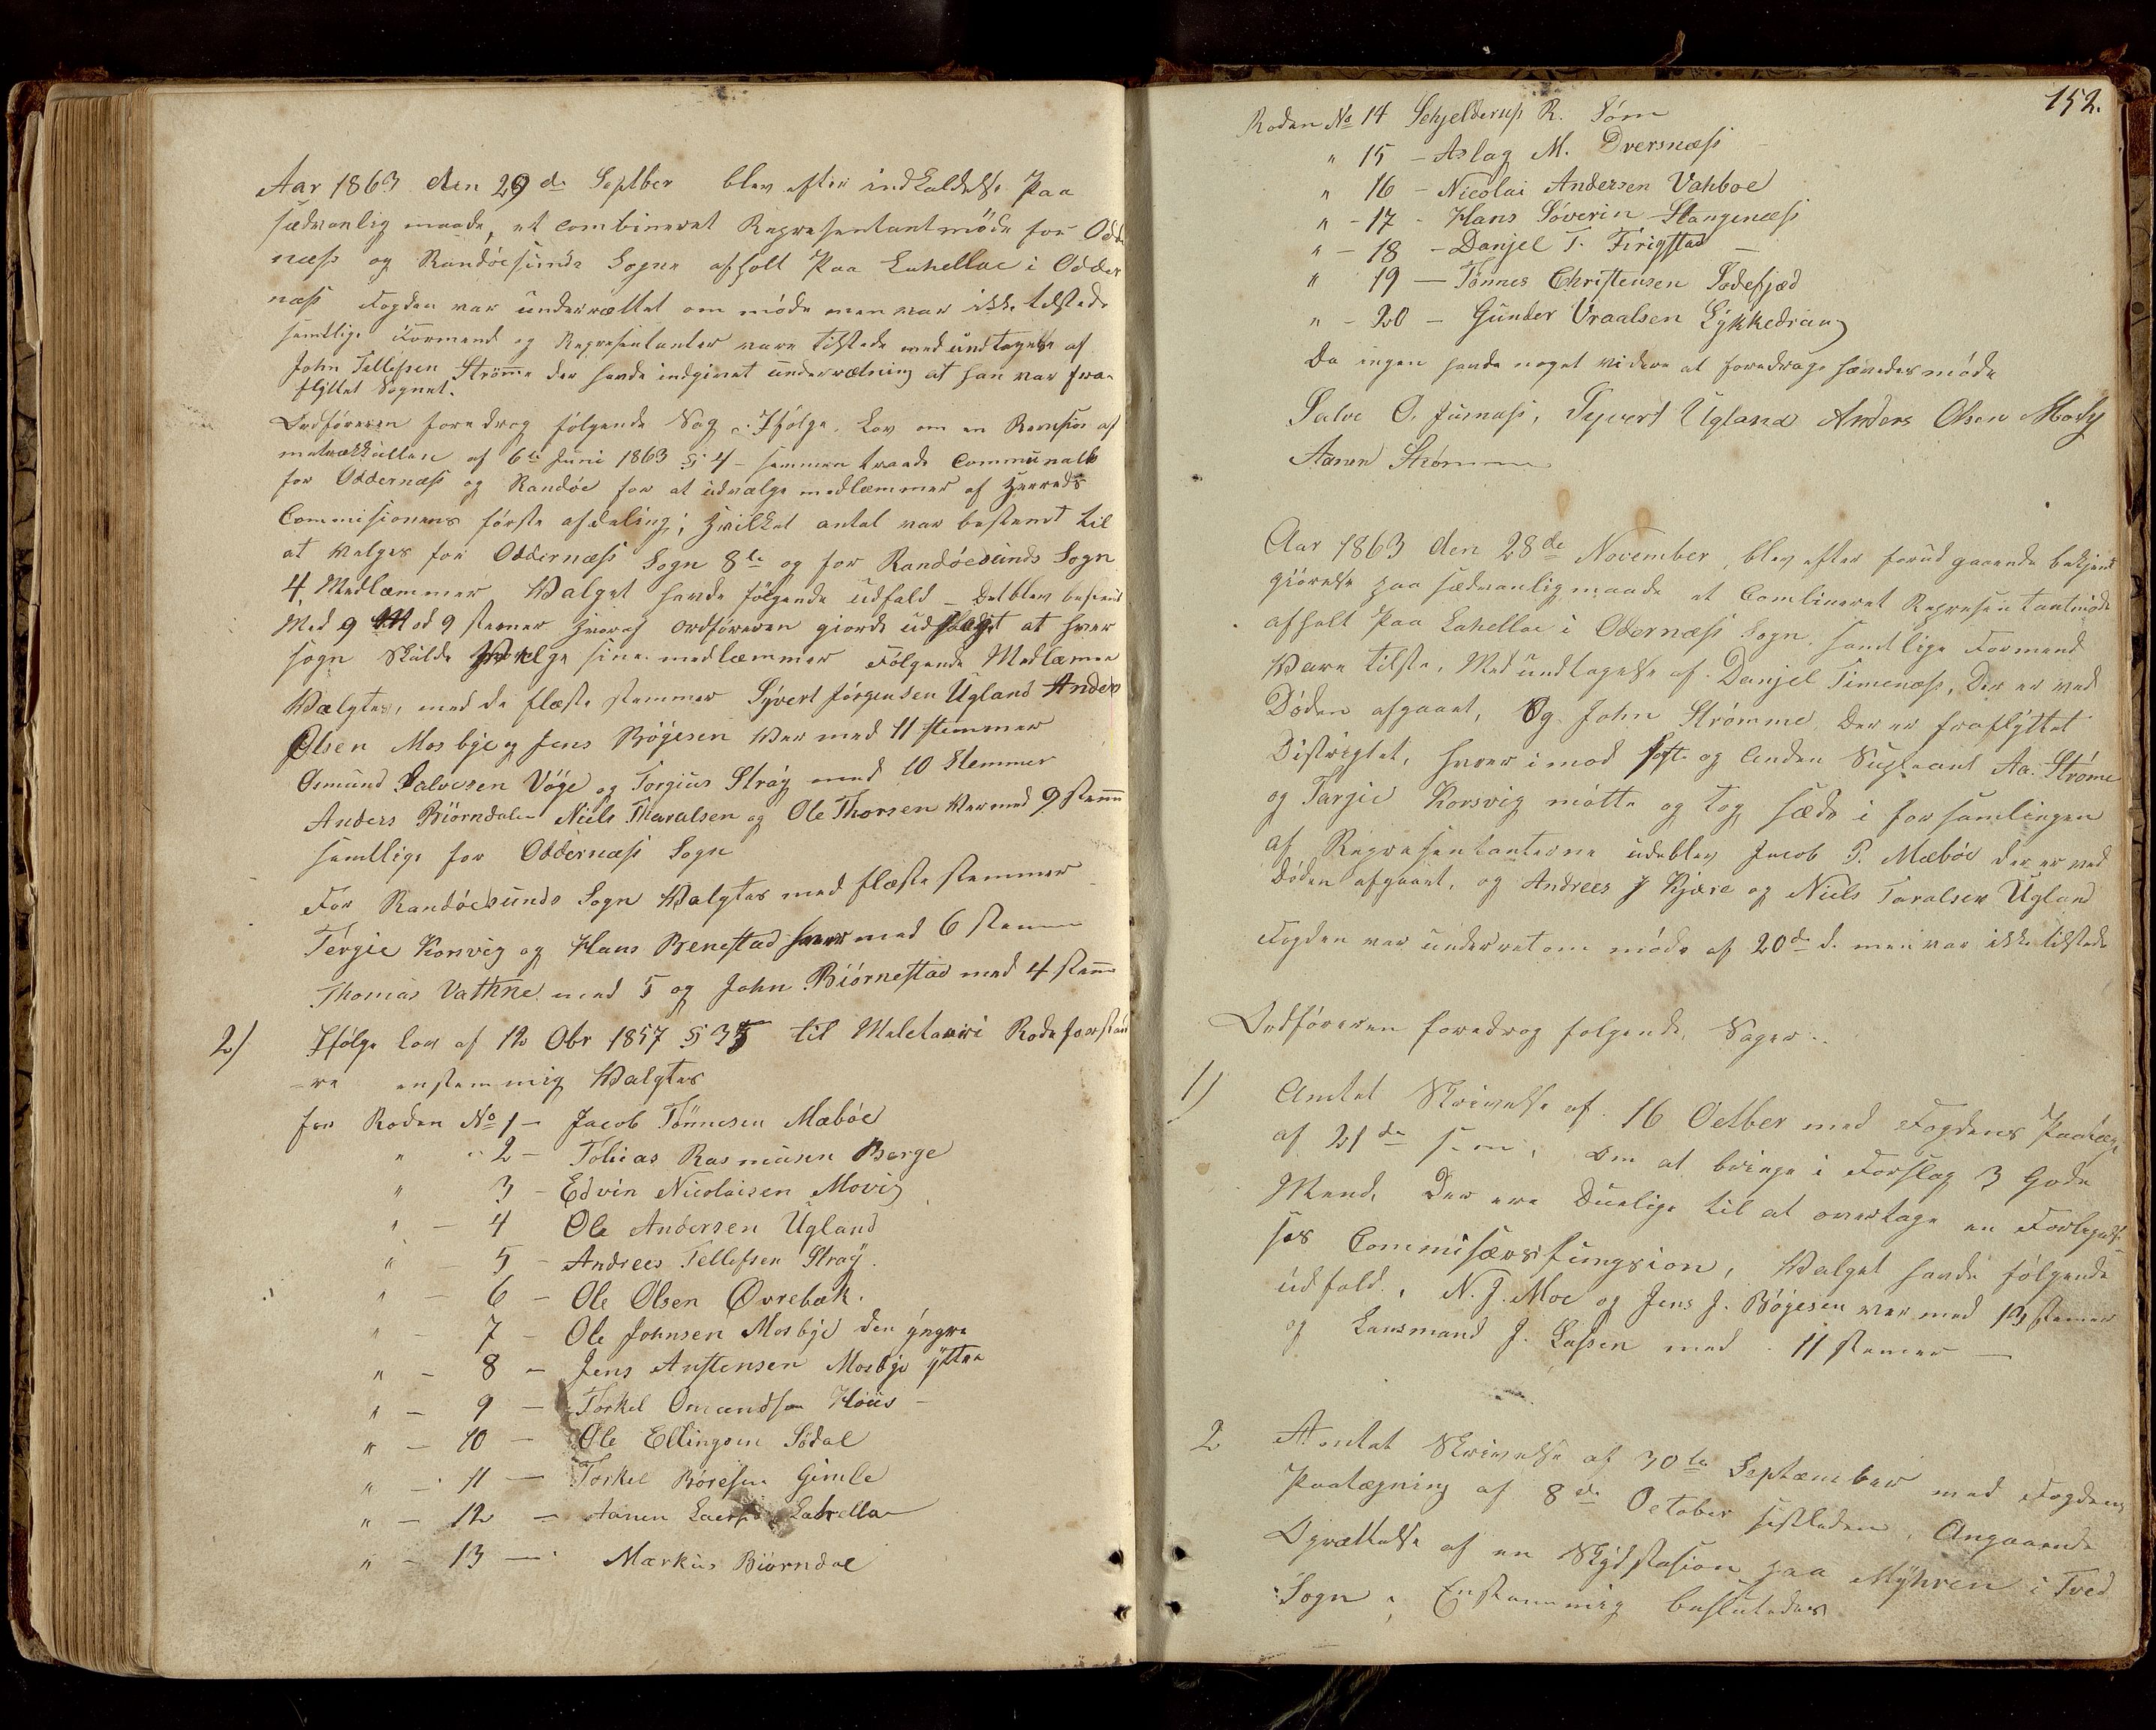 Aar 1863 den 29de Septber blev efter indkaldelse Paa
sædvanlig maade, et combineret Representantmöde for Odd
næss og Randöesunds Sogne afholt Paa Lahellae i Odder
næss Fogden var underrættet om möde men var ikke tilstede
samtlige Formend og Representanter vare tilstede med undtagelse af
John Tellefsen Strömme der havde indgivet underrætning at han var fra-
flyttet Sognet.
Ordföreren foredrog fölgende Sag. Ifölge Lov om en Revision af
matrækkullen af 6te Juni 1863 § 4 - sammen traade Communalb
for Oddernæss og Randöe for at udvælge medlæmmer af Herreds
Commisionens förste afdeling; Hvilket antal var bestemt til
at Valges for Oddernæss Sogn 8te og for Randöesunds Sogn
4. Medlæmmer Valget havde fölgende udfald - Det blev bestemt
Med 9 Mod 9 stemer hvoraf ordföreren giorde udslaget at hver
sogn Skulde Velge sine medlæmmer Fölgende Medlæmer
Valgtes, med de flæste stemmer Syvert Jörgensen Ugland Anders
Olsen Mosbye og Jens Böyesen Var med 11 stemmer
Osmund Salvesen Vöge og Torgius Stray med 10 Stemmer
Anders Biörndalen Niels Tharalsen og Ole Thorsen Var med 9 stem
samtlige for Oddernæss Sogn
For Randöesunds Sogn Valgtes med flæste stemmer
Tergie Korsvig og Hans Benestad hver med 6 stemm
Thomas Vathne med 5 og John Biörnestad med 4 stem
2) Ifölge lov af 12 Obr 1857 § 35 til Meletairi Rodeforstan
-re enstemmig Valgtes
for Roden No 1 - Jacob Tönnesen Mæböe
" " 2 - Tobias Rasmusen Berge
" 3 - Edvin Nicolaisen Movig
" - 4 Ole Andersen Ugland
" - 5 - Andrees Tellefsen Stray.
" - 6 - Ole Olsen Øvrebæk.
" - 7 - Ole Johnsen Mosbye den yngre
" - 8 - Jens Austensen Mosbye yttre
" - 9 - Torkel Omundsen Höiis -
" - 10 - Ole Ellingsen Södal
" - 11 - Torkel Böresen Gimle
" - 12 - Aanen Laersen Lahella
" - 13 - Markus Biörndal
152.
Roden No 14 Schjelderup R. Söm
" 15 - Aslag M. Dversnæss
" 16 - Nicolai Andersen Vahboe
" - 17 - Hans Söverin Stangenæss
" - 18 - Danjel T. Firigstad -
" 19 - Tönnes Christensen Södefjed
" - 20 - Gunder Vraalsen Lykkedrang
Da ingen havde noget videre at foredrage hævedes möde
Salve O. Jusnæss, Syvert Ugland Anders Olsen Mosby
Aanen Strömme
Aar 1863 den 28de November, blev efter forudgaaende bekjent
giörelse paa sædvanlig maade et Combineret Representantmöde
afholt Paa Lahellae i Odernæss Sogn. samtlige Formend
Vare tilste, Med undtagelse af Danjel Timenæss, Der er ved
Döden afgaaet, Og John Strömme Der er fraflyttet
Distrigtet, hvor imod förste og Anden Supleant Aa. Ströme
og Targie Korsvig mötte og tog sæde i forsamlingen
af Representanterne udeblev Jacob T. Mæböe der er ved
Döden afgaaet. og Andrees J Kjære og Niels Taralsen Ugland
Fogden var underretom möde af 20de d. men var ikke tilstede
Ordföreren foredrog folgende, Sager..
1) Amtet Skrivelse af 16 Octber med Fogdens Paateg.
af 21de s. m; om at bringe i Forslag 3 Gode
Mend, Der ere Duelige til at overtage en Forligel-
ses Commisærs Fungsion, Valget havde fölgende
udfald, N. J. Moe og Jens J. Böyesen var med 12 stemer
og Lensmand J. Lassen med 11 stemer -
2 Amtet Skrivelse af 30te Septæmber med Fogdens
Paatægning af 8de October sistleden, Angaaende
Oprættelse af en Skydstasion paa Myhren i Tved
Sogn; Enstemmig besluttedes